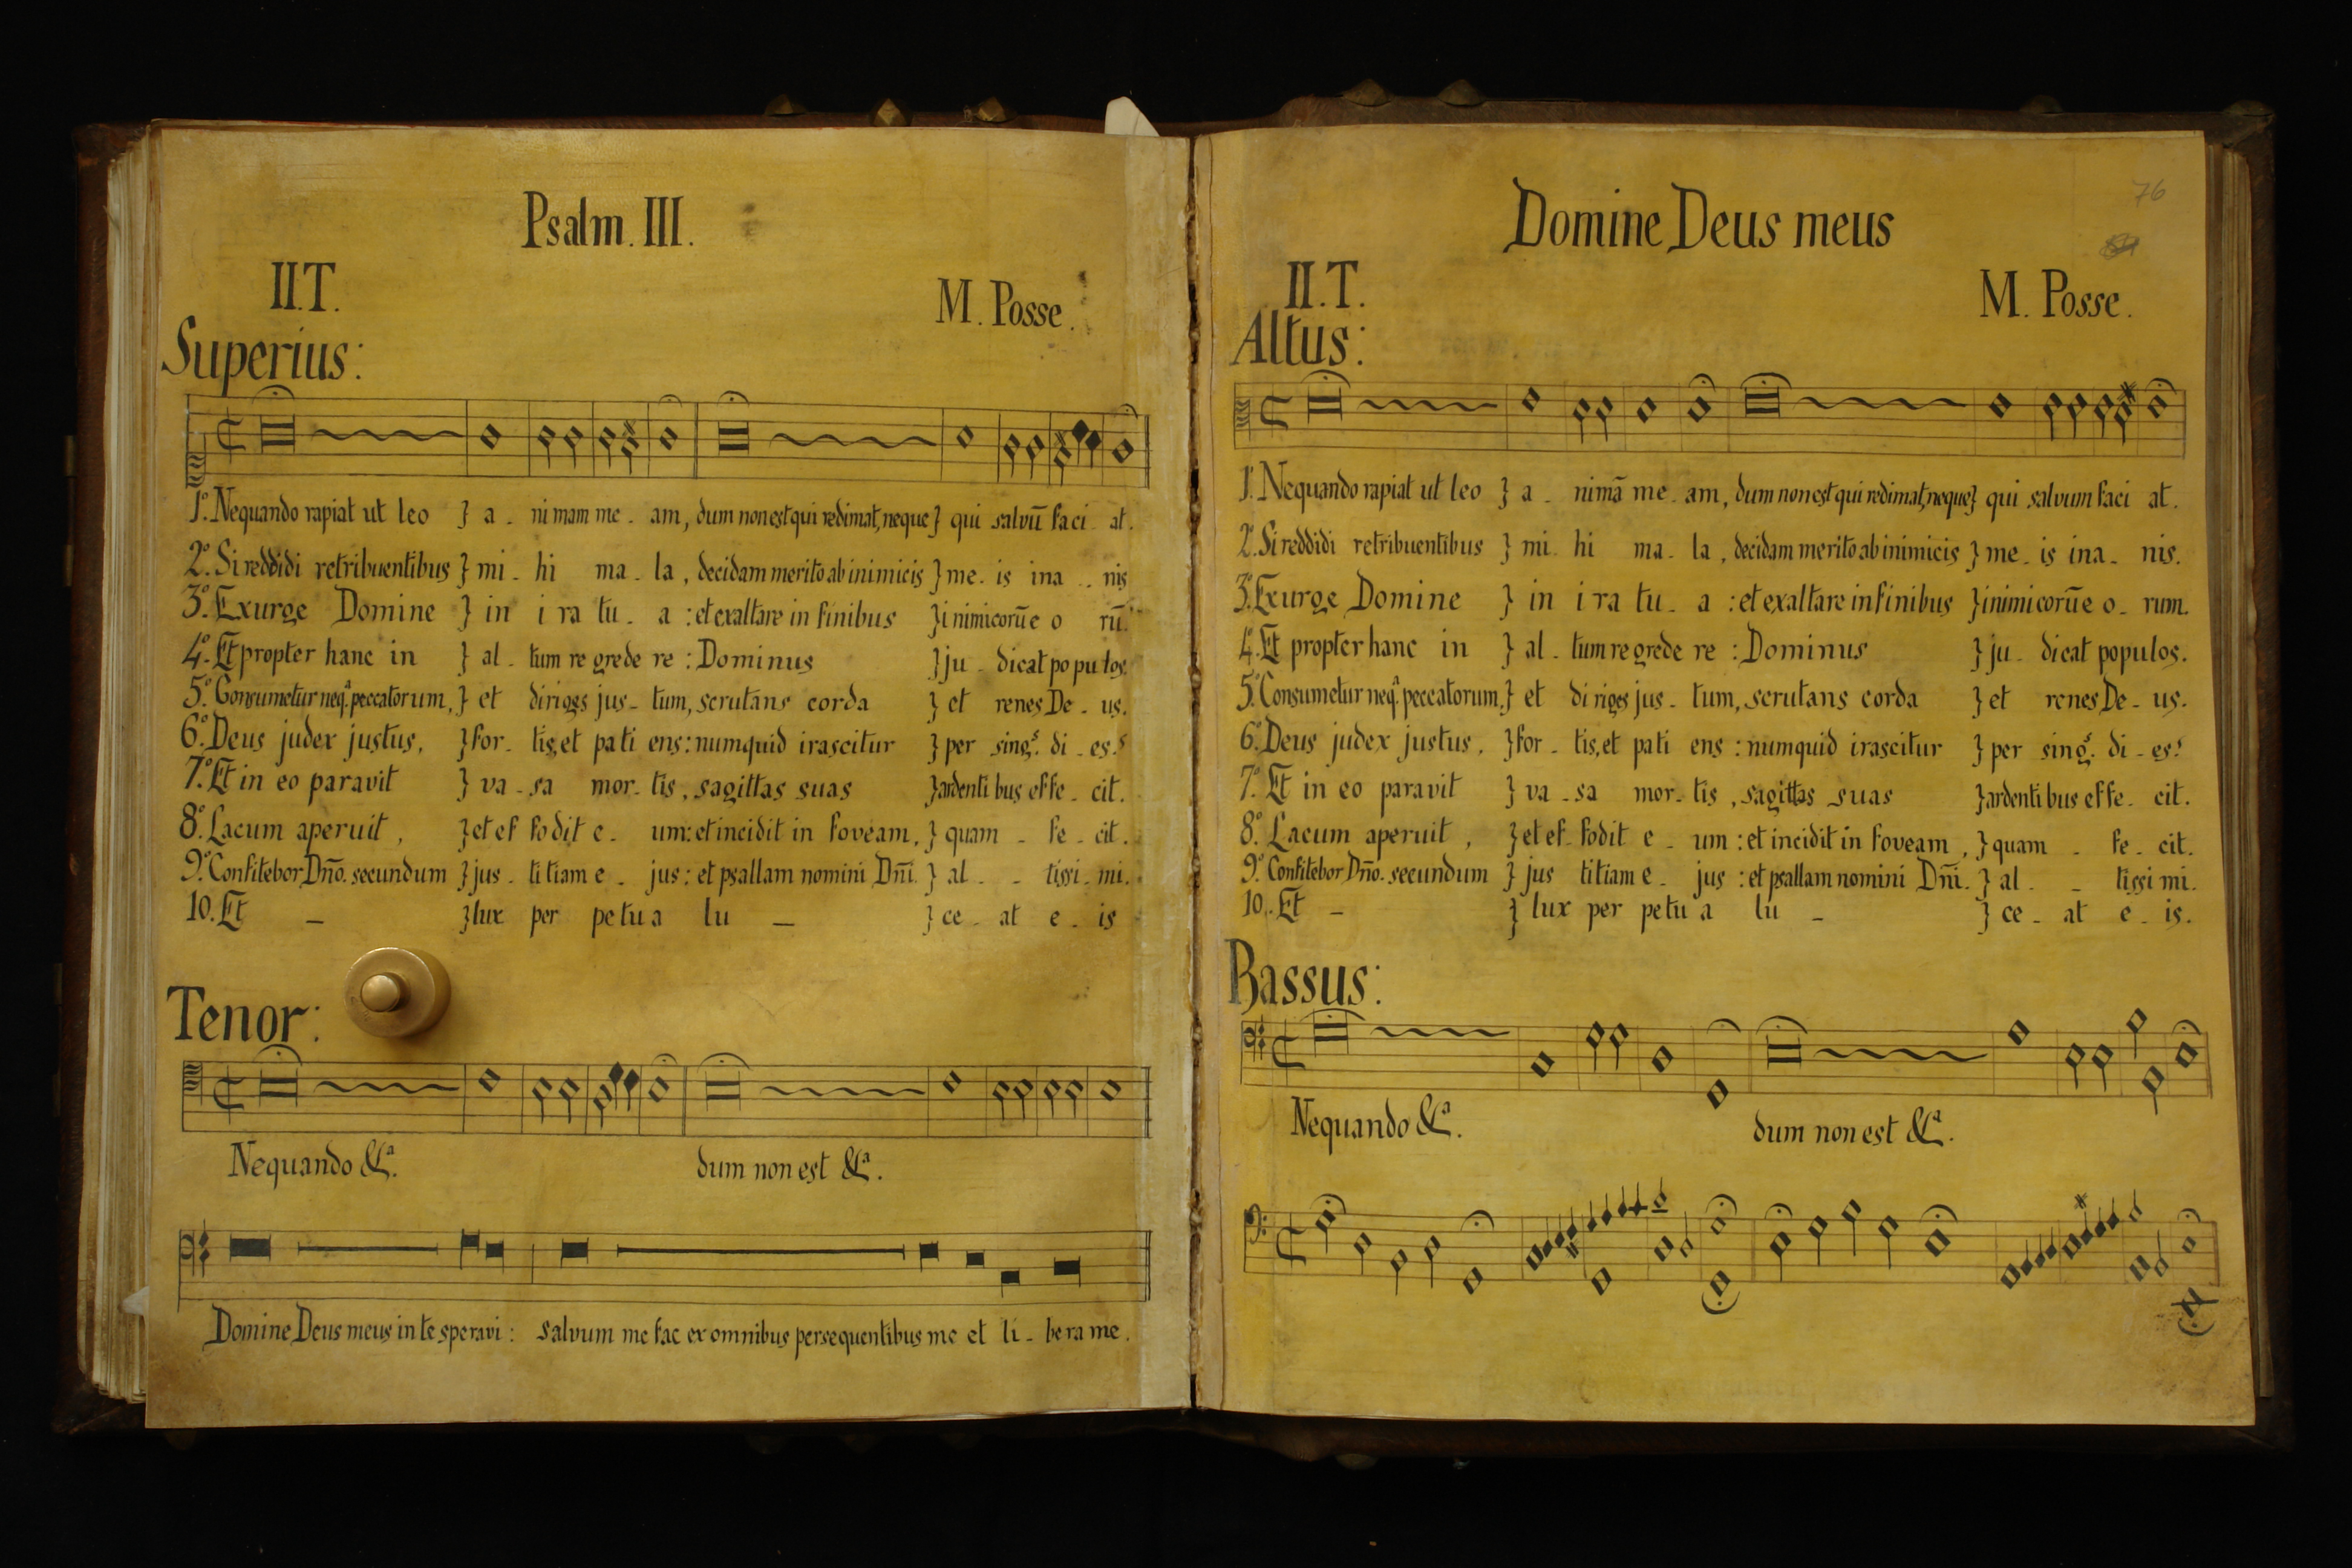 Psalm. III.
II.T.
M. Posse.
Superius:
1.º Nequando rapiat ut leo } a - ni mam me - am, dum non est qui redimat, neque } qui salvū faci - at.
2.º Si reddidi retribuentibus } mi - hi ma - la, decidam merito ab inimicis } me - is ina - nis
3.º Exurge Domine } in i ra tu - a : et exaltare in finibus } inimicorūe o rū.
4.º Et propter hanc in } al - tum re grede re : Dominus } ju - dicat po pu los.
5.º Consumetur neqª. peccatorum, } et diriges jus - tum, scrutans corda } et renes De - us.
6.º Deus judex justus, } for - tis, et pa ti ens: numquid irascitur } per singˢ. di - es?
7.º Et in eo paravit } va - sa mor - tis, sagittas suas } ardenti bus effe - cit.
8.º Lacum aperuit, } et ef fodit e - um: et incidit in foveam, } quam - fe - cit.
9.º Confitebor Dño. secundum } jus - ti tiam e - jus: et psallam nomini Dñi. } al - - tissi - mi.
10. Et - } lux per pe tu a lu - } ce - at e - is
Tenor:
Nequando &ª.
dum non est &ª.
Domine Deus meus in te speravi : salvum me fac ex omnibus persequentibus me et li - bera me.
76
Domine Deus meus
II.T.
M. Posse.
Altus:
1.º Nequando rapiat ut leo } a - nimā me - am, dum non est qui redimat, neque } qui salvum faci at.
2.º Si reddidi retribuentibus } mi - hi ma - la, decidam merito ab inimicis } me - is ina - nis.
3.º Exurge Domine } in i ra tu - a : et exaltare in finibus } inimicorūe o - rum.
4.º Et propter hanc in } al - tum re grede re : Dominus } ju - dicat populos.
5.º Consumetur neqª. peccatorum, } et di riges jus - tum, scrutans corda } et renes De - us.
6.º Deus judex justus, } for - tis, et pati ens : numquid irascitur } per singˢ. di - es?
7.º Et in eo paravit } va - sa mor - tis, sagittas suas } ardenti bus effe - cit.
8.º Lacum aperuit, } et ef - fodit e - um : et incidit in foveam, } quam - fe - cit.
9.º Confitebor Dño. secundum } jus titiam e - jus : et psallam nomini Dñi. } al - - tissi mi.
10. Et - } lux per petu a lu - } ce - at e - is.
Bassus:
Nequando &ª.
dum non est &ª.